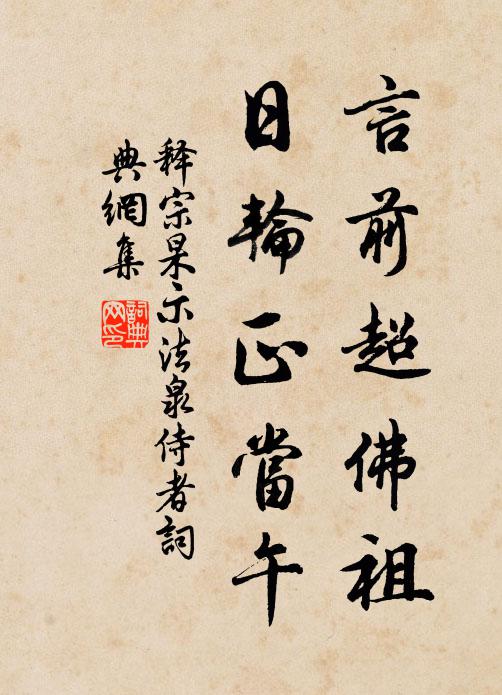 言前超佛祖
日輪正當午
释宗杲示法泉侍者詞
典網集
詞典
网印